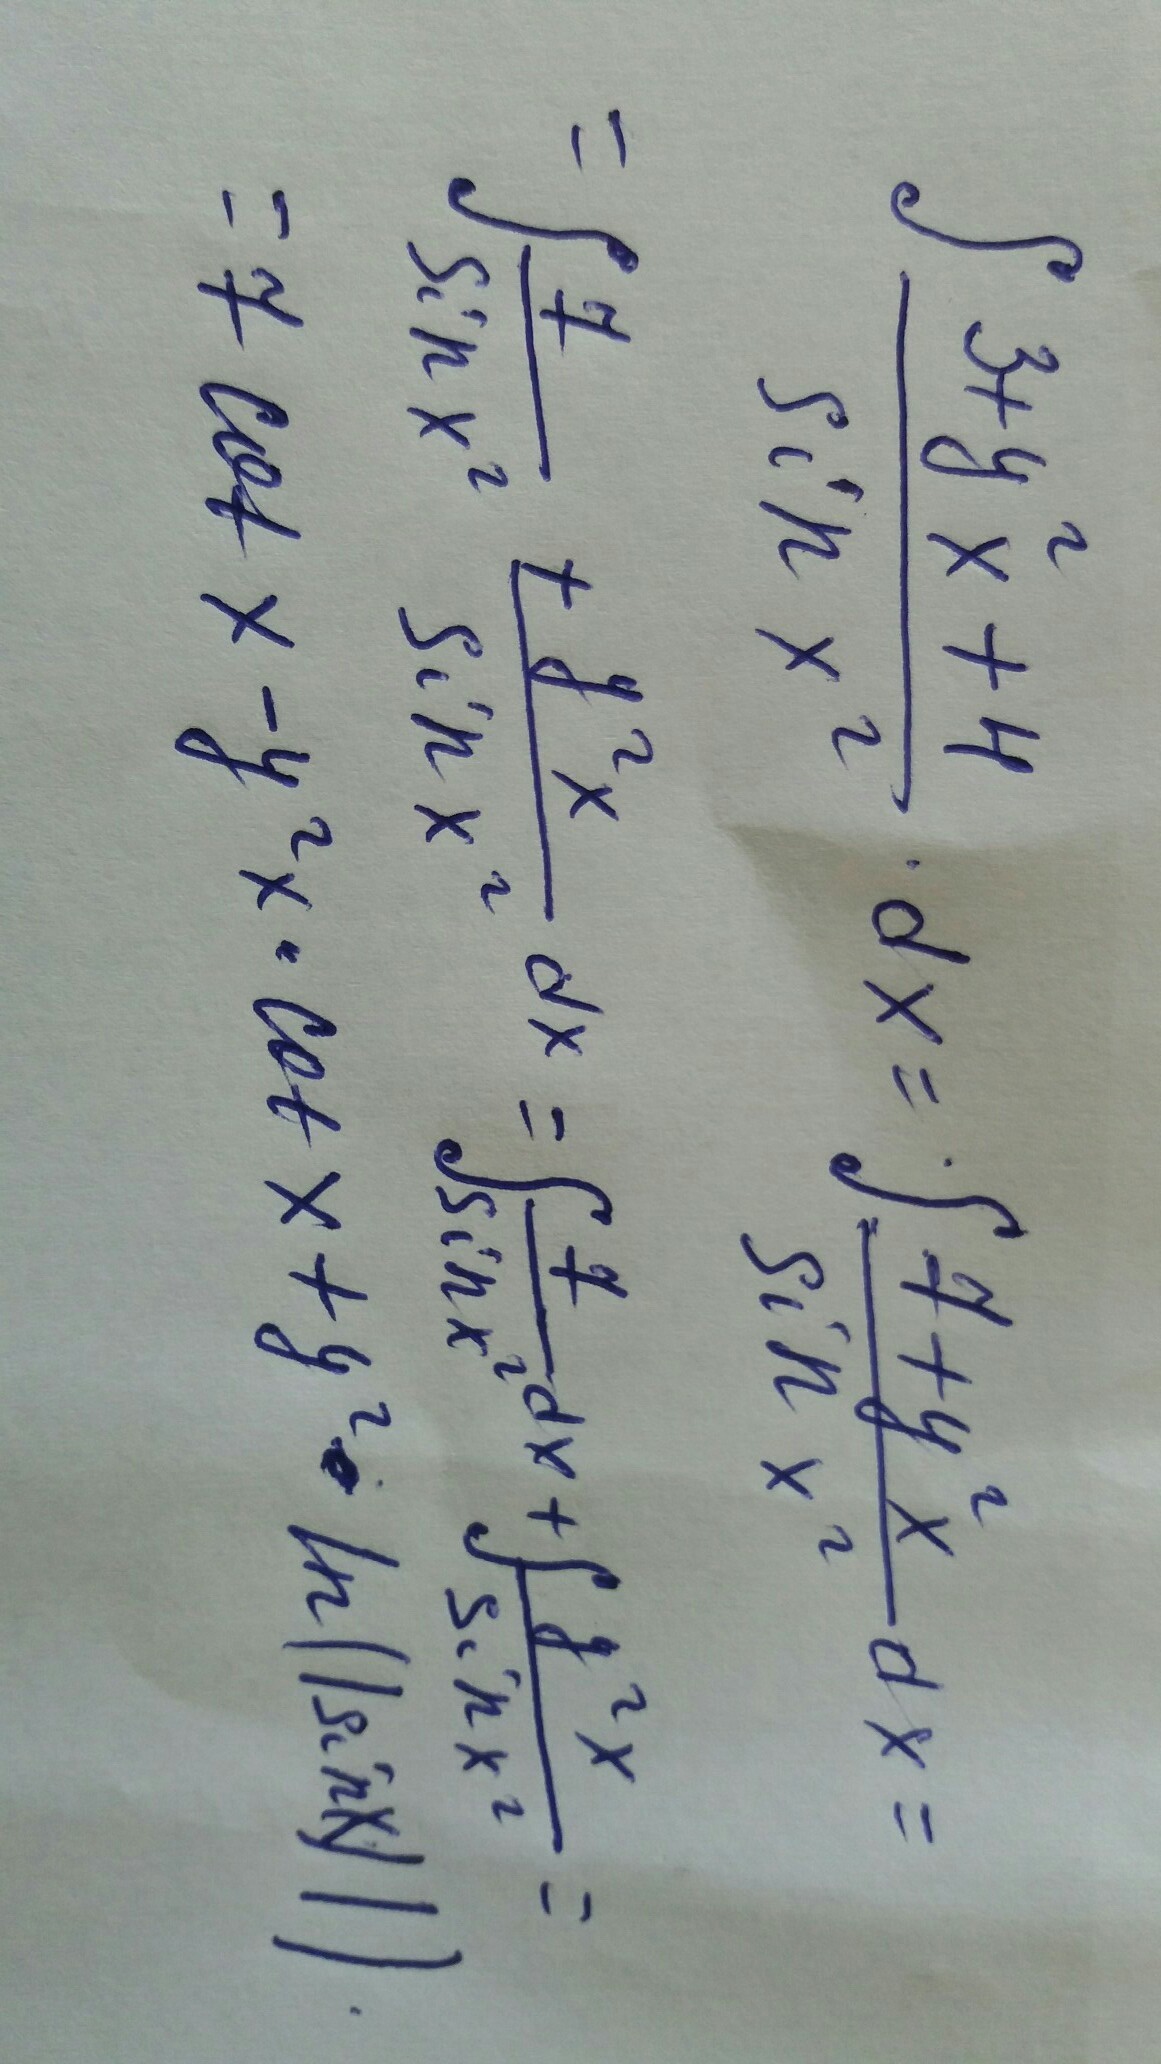 ∫ (3+y²x+4)/(sin x²) · dx = ∫ (7+y²x)/(sin x²) dx =
= ∫ 7/(sin x²) + (y²x)/(sin x²) dx = ∫ 7/(sin x²) dx + ∫ (y²x)/(sin x²) =
= 7 cot x - y²x · cot x + y² · ln(|sin(x)|).